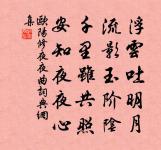 浮雲吐明月
流影玉階陰
千里雖共照
安知夜夜心
歐陽修夜夜曲詞典網
集